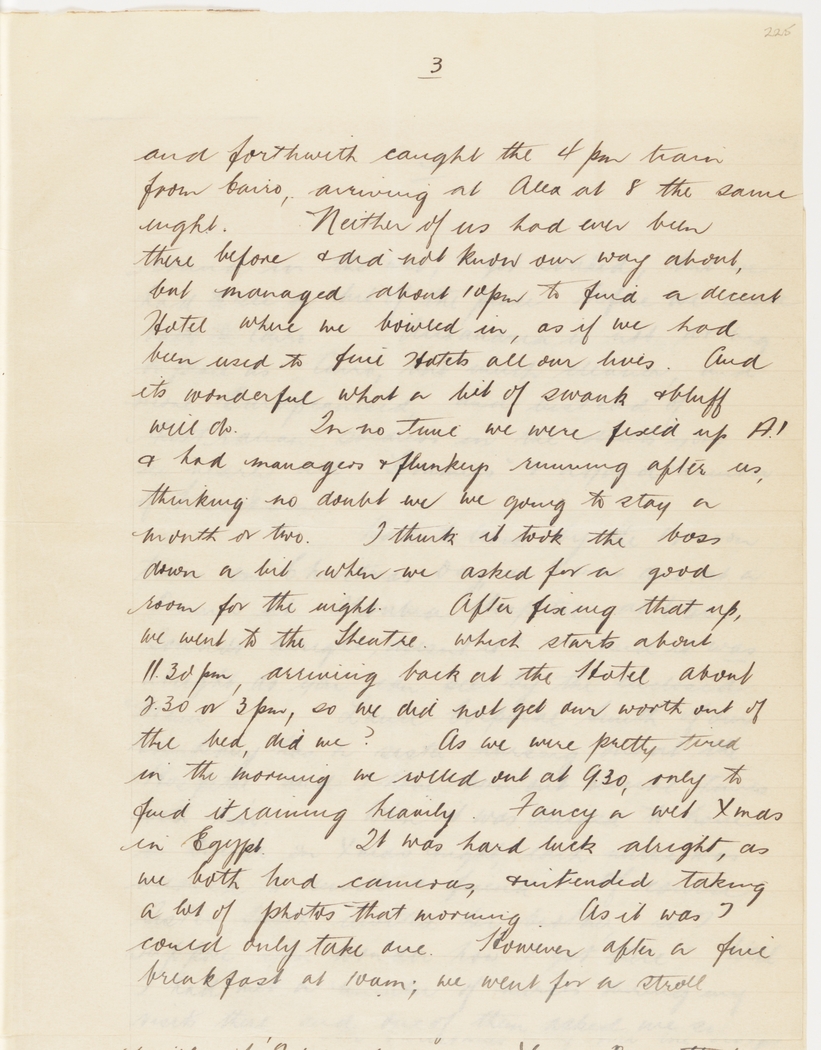 225
3
and forthwith caught the 4 pm train
from Cairo, arriving at Alex at 8 the same
night. Neither of us had ever been
there before & did not know our way about,
but managed about 10pm to find a decent
Hotel where we bowled in, as if we had
been used to fine Hotels all our lives. And
its wonderful what a bit of swank & bluff
will do. In no time we were fixed up A.1
& had managers & flunkeys running after us,
thinking no doubt we we going to stay a
month or two. I think it took the boss
down a bit when we asked for a good
room for the night. After fixing that up,
we went to the Theatre. which starts about
11.30 pm, arriving back at the Hotel about
2.30 or 3 pm, so we did not get our worth out of
the bed, did we? As we were pretty tired
in the morning we rolled out at 9.30, only to
find it raining heavily. Fancy a wet Xmas
in Egypt. It was hard luck alright, as
we both had cameras, & intended taking
a lot of photos that morning As it was I
could only take one. However after a fine
breakfast at 10am; we went for a stroll